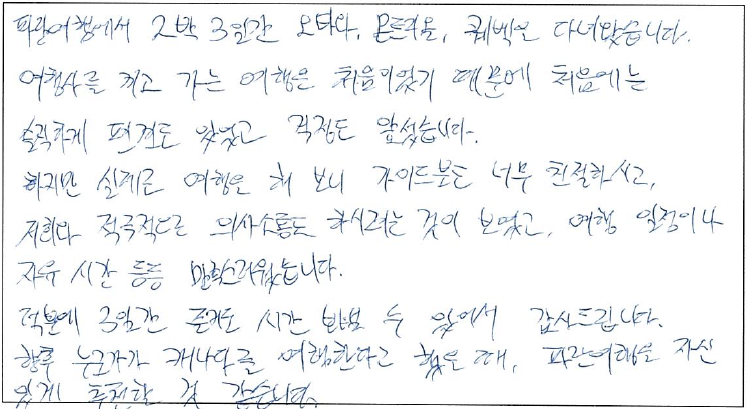 파란여행에서 2박 3일간 오타와, 몬트리올, 퀘벡을 다녀왔습니다.
여행사를 끼고 가는 여행은 처음이었기 때문에 처음에는
솔직하게 편견도 있었고 걱정도 앞섰습니다.
하지만 실제로 여행을 해 보니 가이드분도 너무 친절하시고,
저희와 적극적으로 의사소통도 하시려는 것이 보였고, 여행 일정이나
자유 시간 등등 만족스러웠습니다.
덕분에 3일간 즐거운 시간 보낼 수 있어서 감사드립니다.
향후 누군가가 캐나다를 여행한다고 했을 때, 파란여행을 자신
있게 추천할 것 같습니다.